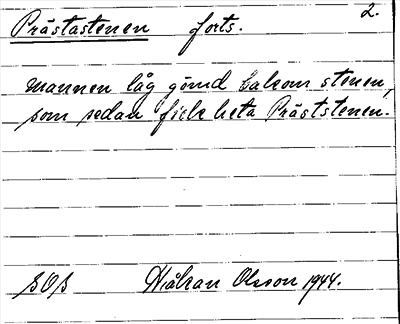 2.
Prästastenen forts.
mannen låg gömd bakom stenen,
som sedan fick heta Präststenen.
Håkan Olsson 1944.